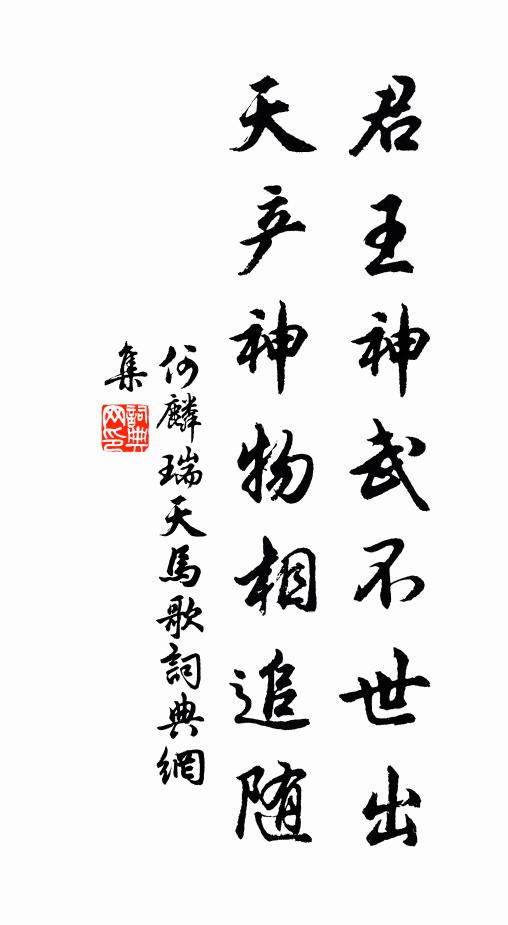 君王神武不世出
天产神物相追随
何麟瑞天馬歌詞典網
集
詞典网印